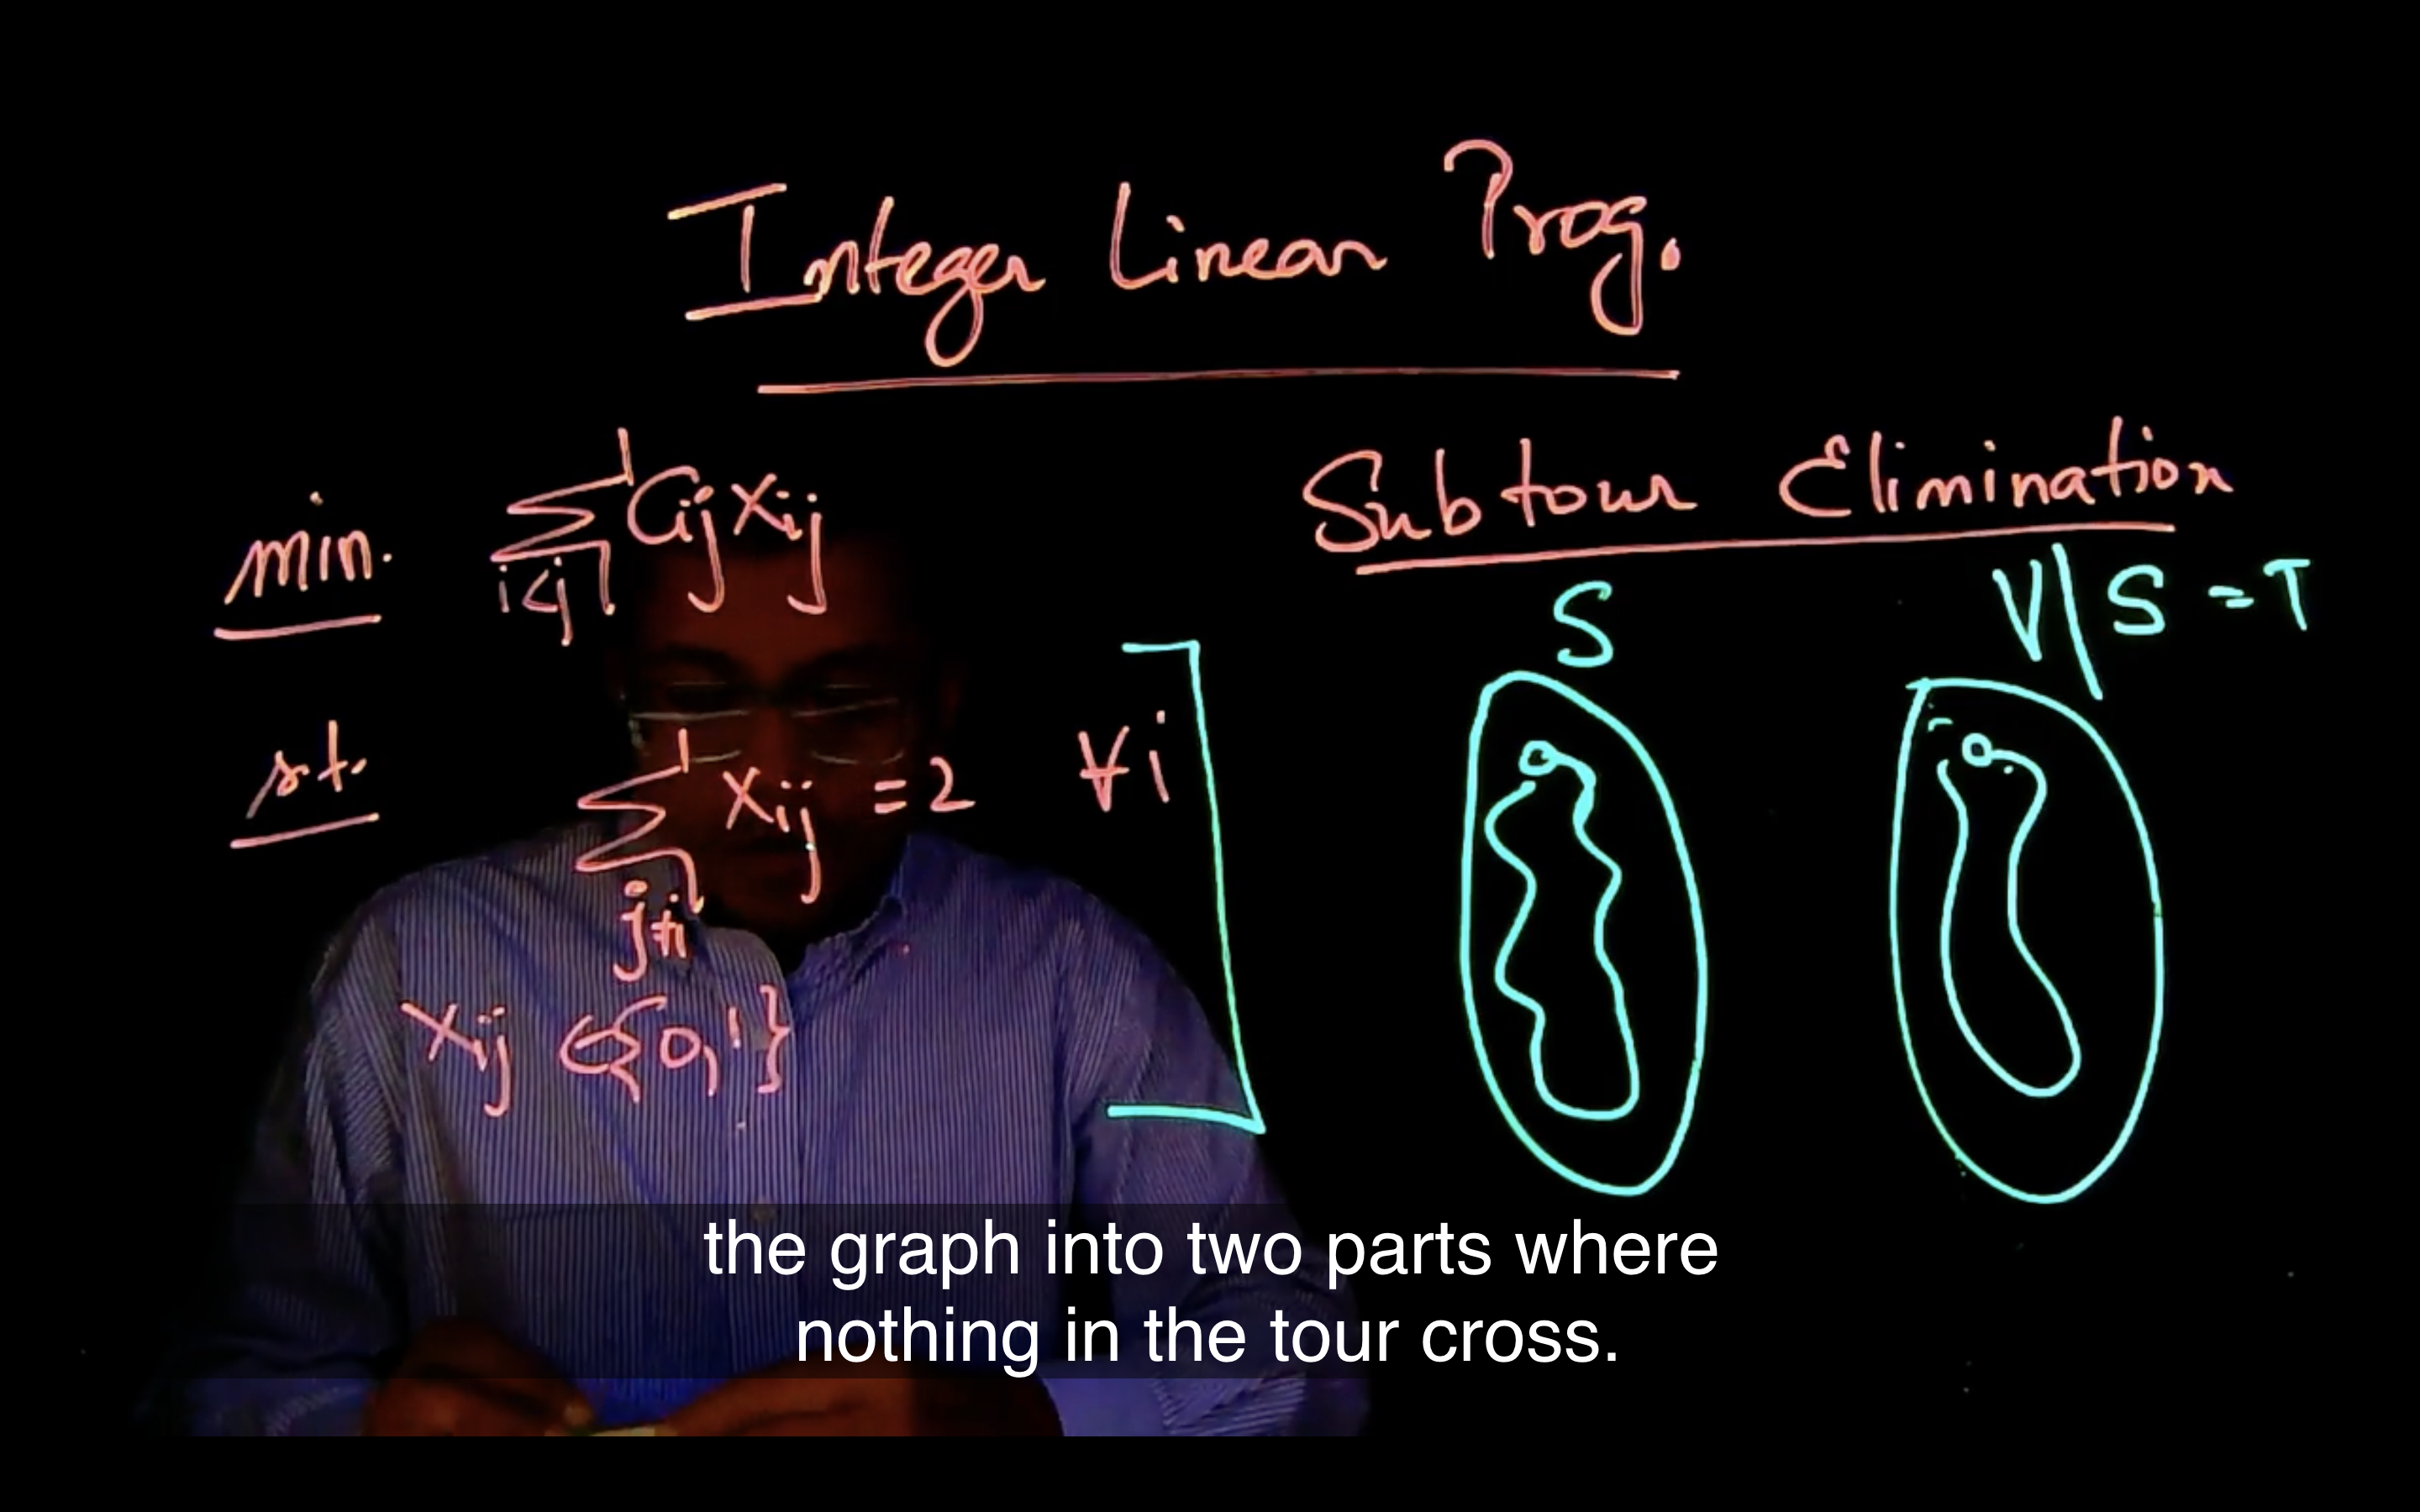 Integer Linear Prog.
min. ∑ Cij xij
i<j
s.t. ∑ xij = 2 ∀i
j≠i
xij ∈ {0,1}
Subtour Elimination
S V|S = T
the graph into two parts where
nothing in the tour cross.